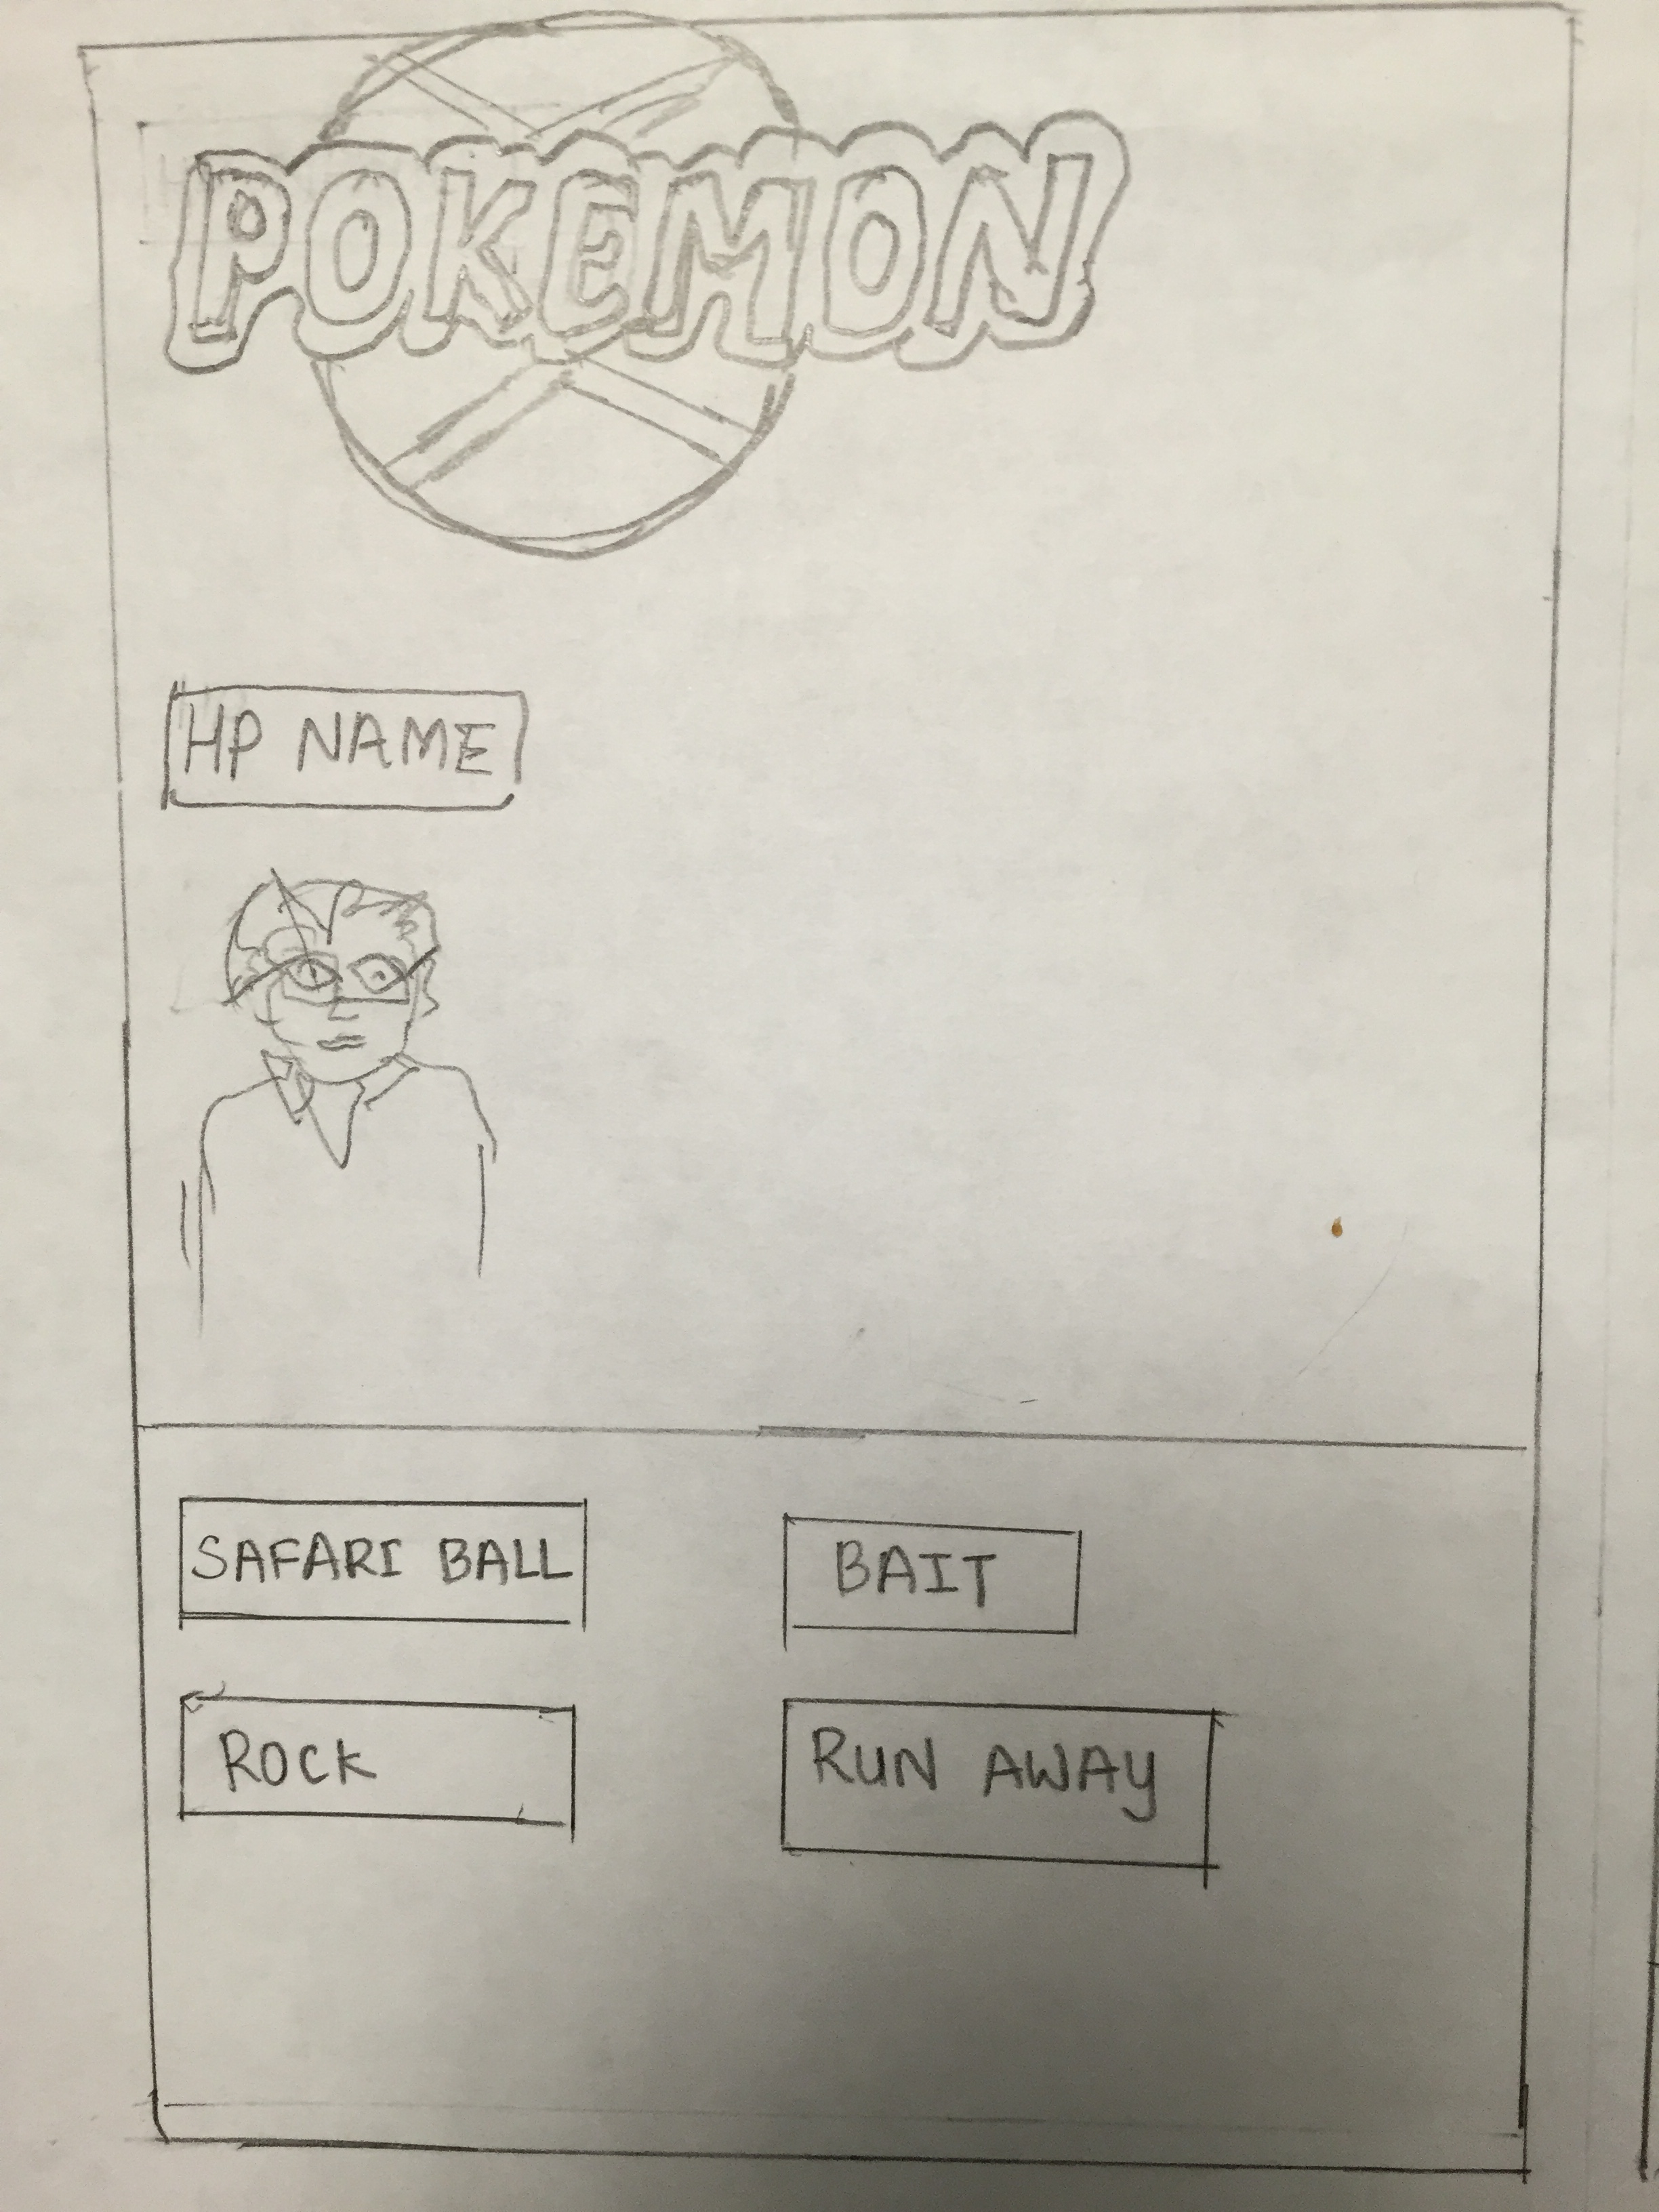 POKEMON
HP NAME
SAFARI BALL
BAIT
ROCK
RUN AWAY